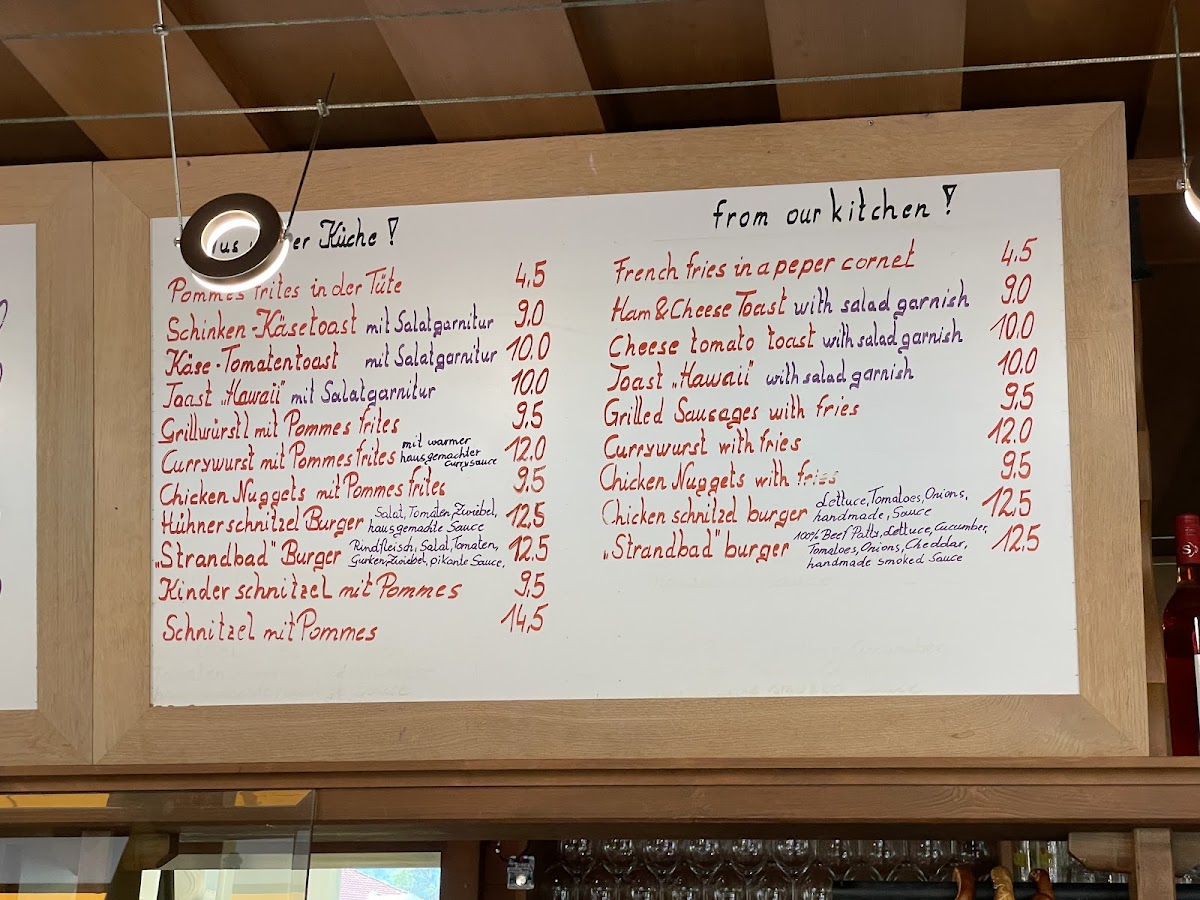 er Küche!
Pommes frites in der Tüte 4,5
Schinken-Käsetoast mit Salatgarnitur 9.0
Käse-Tomatentoast mit Salatgarnitur 10.0
Toast „Hawaii" mit Salatgarnitur 10.0
Grillwürstl mit Pommes frites 9,5
Currywurst mit Pommes frites mit warmer hausgemachter currysauce 12.0
Chicken Nuggets mit Pommes frites 9,5
Hühnerschnitzel Burger Salat, Tomaten, Zwiebel, hausgemachte Sauce 12,5
„Strandbad" Burger Rindfleisch, Salat, Tomaten, Gurken, Zwiebel, pikante Sauce, 12.5
Kinderschnitzel mit Pommes 9,5
Schnitzel mit Pommes 14,5
from our kitchen!
French fries in a peper cornet 4.5
Ham & Cheese Toast with salad garnish 9.0
Cheese tomato toast with salad garnish 10.0
Toast „Hawaii" with salad garnish 10.0
Grilled Sausages with fries 9,5
Currywurst with fries 12.0
Chicken Nuggets with fries 9,5
Chicken schnitzel burger Lettuce, Tomatoes, Onions, handmade, Sauce 12,5
„Strandbad" burger 100% Beef Patty, Lettuce, Cucumber, Tomatoes, Onions, Cheddar, handmade smoked Sauce 12,5